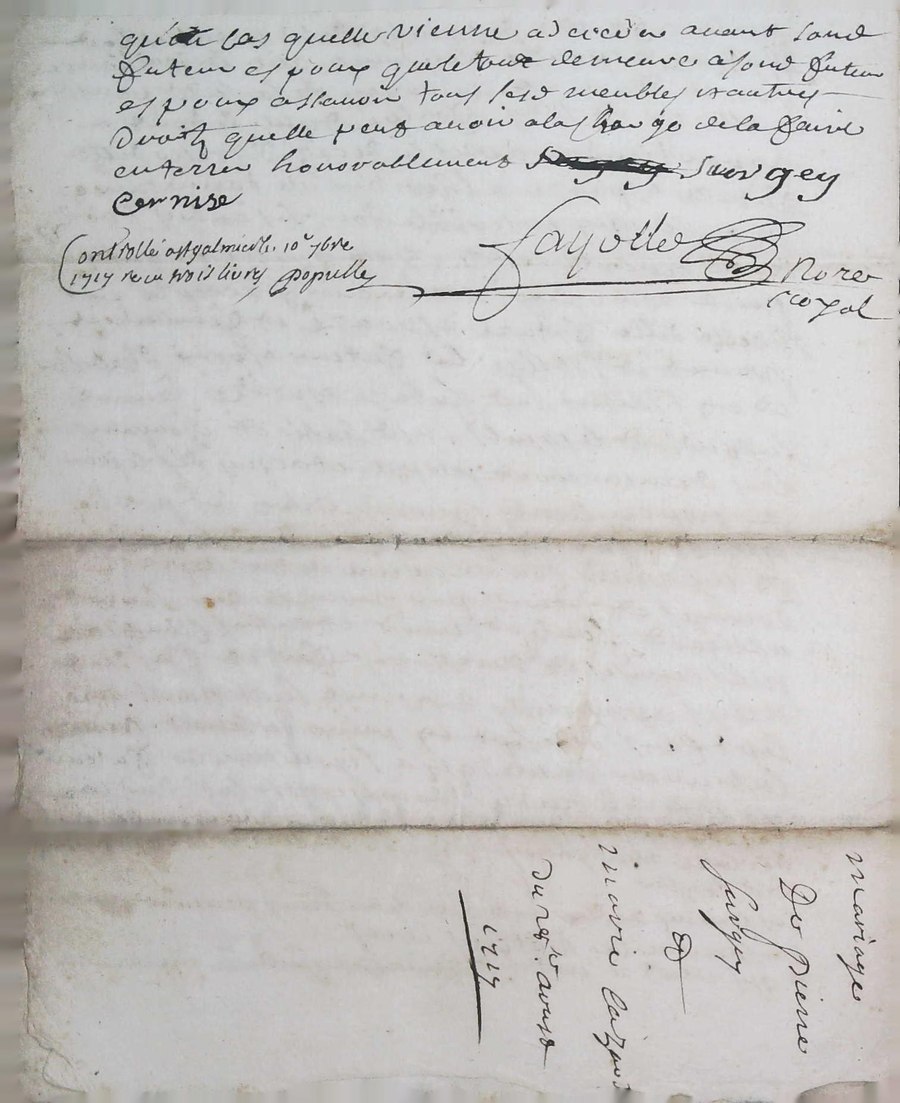 qu'en cas quelle vienne a deceder avant sond
futeur espoux que le tout demeure a sond futeur
espoux assavoir tous sesd meubles et autres
Droitz quelle peut avoir a la charge de la faire
enterrer honorablement Surgey
Cernise
Controllé a St galmier le 10e 7bre
1717 recu trois livres populle
Fayolle
No re
royal
mariage
De Pierre
Surgey
&
marie
du 28e aoust
1717